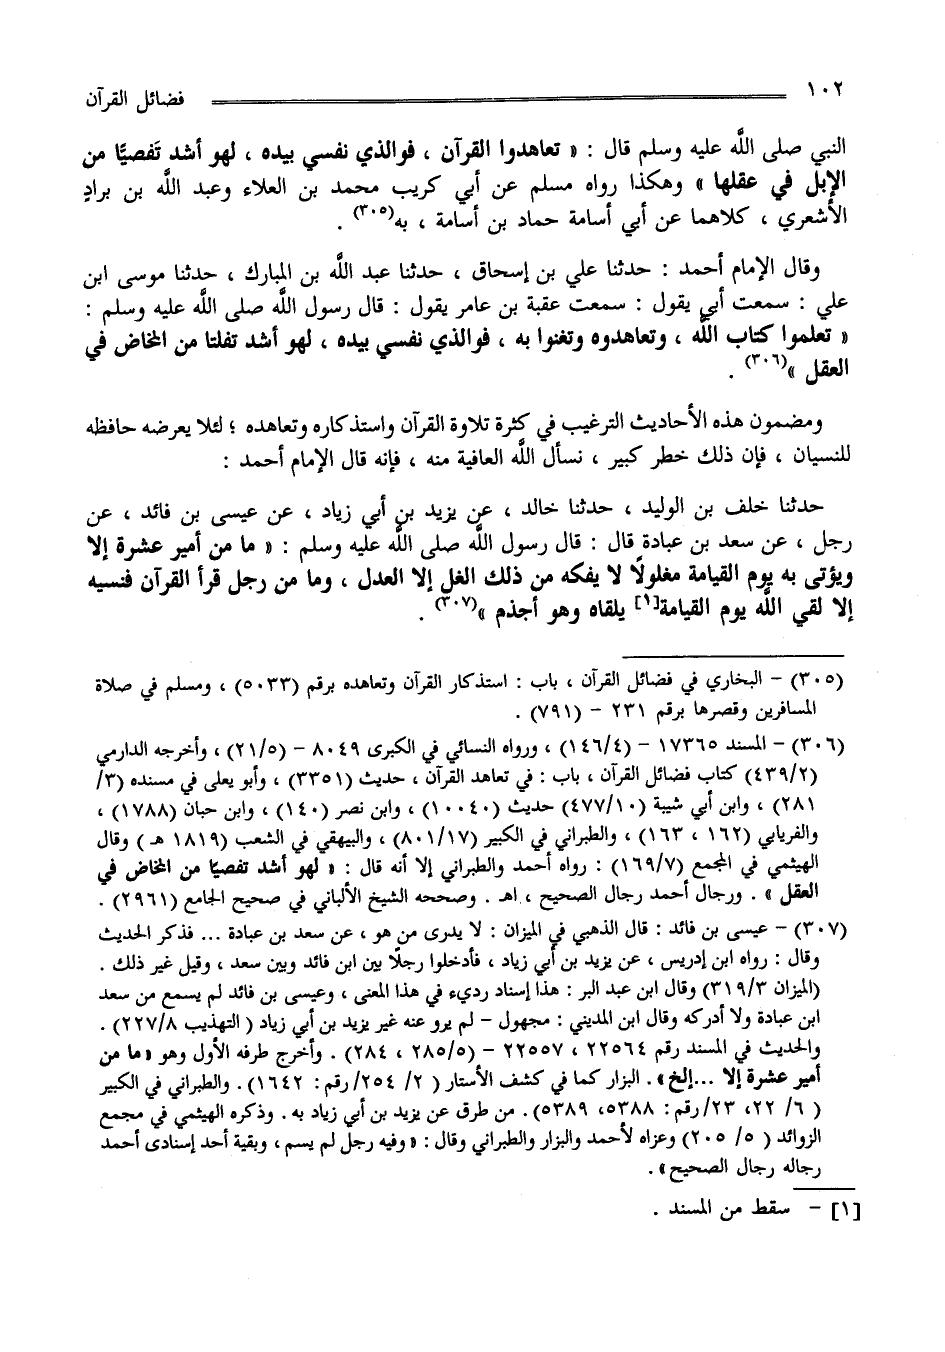 ١٠٢ فضائل القرآن
النبي صلى الله عليه وسلم قال : « تعاهدوا القرآن ، فوالذي نفسي بيده ، لهو أشد تَفصيًّا من
الإبل في عقلها » وهكذا رواه مسلم عن أبي كريب محمد بن العلاء وعبد الله بن برادٍ
الأشعري ، كلاهما عن أبي أسامة حماد بن أسامة ، به(٣٠٥) .
وقال الإمام أحمد : حدثنا علي بن إسحاق ، حدثنا عبد الله بن المبارك ، حدثنا موسى ابن
علي : سمعت أبي يقول : سمعت عقبة بن عامر يقول : قال رسول الله صلى الله عليه وسلم :
« تعلموا كتاب الله ، وتعاهدوه وتغنوا به ، فوالذي نفسي بيده ، لهو أشد تفلتا من المخاض في
العقل »(٣٠٦) .
ومضمون هذه الأحاديث الترغيب في كثرة تلاوة القرآن واستذكاره وتعاهده ؛ لئلا يعرضه حافظه
للنسيان ، فإن ذلك خطر كبير ، نسأل الله العافية منه ، فإنه قال الإمام أحمد :
حدثنا خلف بن الوليد ، حدثنا خالد ، عن يزيد بن أبي زياد ، عن عيسى بن فائد ، عن
رجل ، عن سعد بن عبادة قال : قال رسول الله صلى الله عليه وسلم : « ما من أمير عشرة إلا
ويؤتى به يوم القيامة مغلولًا لا يفكه من ذلك الغل إلا العدل ، وما من رجل قرأ القرآن فنسيه
إلا لقي الله يوم القيامة[١] يلقاه وهو أجذم »(٣٠٧) .
(٣٠٥) – البخاري في فضائل القرآن ، باب : استذكار القرآن وتعاهده برقم (٥٠٣٣) ، ومسلم في صلاة
المسافرين وقصرها برقم ٢٣١ – (٧٩١) .
(٣٠٦) – المسند ١٧٣٦٥ – (١٤٦/٤) ، ورواه النسائي في الكبرى ٨٠٤٩ – (٢١/٥) ، وأخرجه الدارمي
(٤٣٩/٢) كتاب فضائل القرآن ، باب : في تعاهد القرآن ، حديث (٣٣٥١) ، وأبو يعلى في مسنده (٣/
٢٨١) ، وابن أبي شيبة (٤٧٧/١٠) حديث (١٠٠٤٠) ، وابن نصر (١٤٠) ، وابن حبان (١٧٨٨) ،
والفريابي (١٦٢ ، ١٦٣) ، والطبراني في الكبير (٨٠١/١٧) ، والبيهقي في الشعب (١٨١٩ هـ) وقال
الهيثمي في المجمع (١٦٩/٧) : رواه أحمد والطبراني إلا أنه قال : « لهو أشد تفصيًا من المخاض في
العقل » . ورجال أحمد رجال الصحيح ، اهـ . وصححه الشيخ الألباني في صحيح الجامع (٢٩٦١) .
(٣٠٧) – عيسى بن فائد : قال الذهبي في الميزان : لا يدرى من هو ، عن سعد بن عبادة ... فذكر الحديث
وقال : رواه ابن إدريس ، عن يزيد بن أبي زياد ، فأدخلوا رجلًا بين ابن فائد وبين سعد ، وقيل غير ذلك .
(الميزان ٣١٩/٣) وقال ابن عبد البر : هذا إسناد رديء في هذا المعنى ، وعيسى بن فائد لم يسمع من سعد
ابن عبادة ولا أدركه وقال ابن المديني : مجهول – لم يرو عنه غير يزيد بن أبي زياد ( التهذيب ٢٢٧/٨) .
والحديث في المسند رقم ٢٢٥٦٤ ، ٢٢٥٥٧ – (٢٨٥/٥ ، ٢٨٤) . وأخرج طرفه الأول وهو «ما من
أمير عشرة إلا ...إلخ» . البزار كما في كشف الأستار ( ٢/ ٢٥٤/ رقم: ١٦٤٢) . والطبراني في الكبير
( ٦/ ٢٢، ٢٣/رقم: ٥٣٨٨، ٥٣٨٩) . من طرق عن يزيد بن أبي زياد به . وذكره الهيثمي في مجمع
الزوائد ( ٥/ ٢٠٥) وعزاه لأحمد والبزار والطبراني وقال : «وفيه رجل لم يسم ، وبقية أحد إسنادى أحمد
رجاله رجال الصحيح» .
[١] – سقط من المسند .